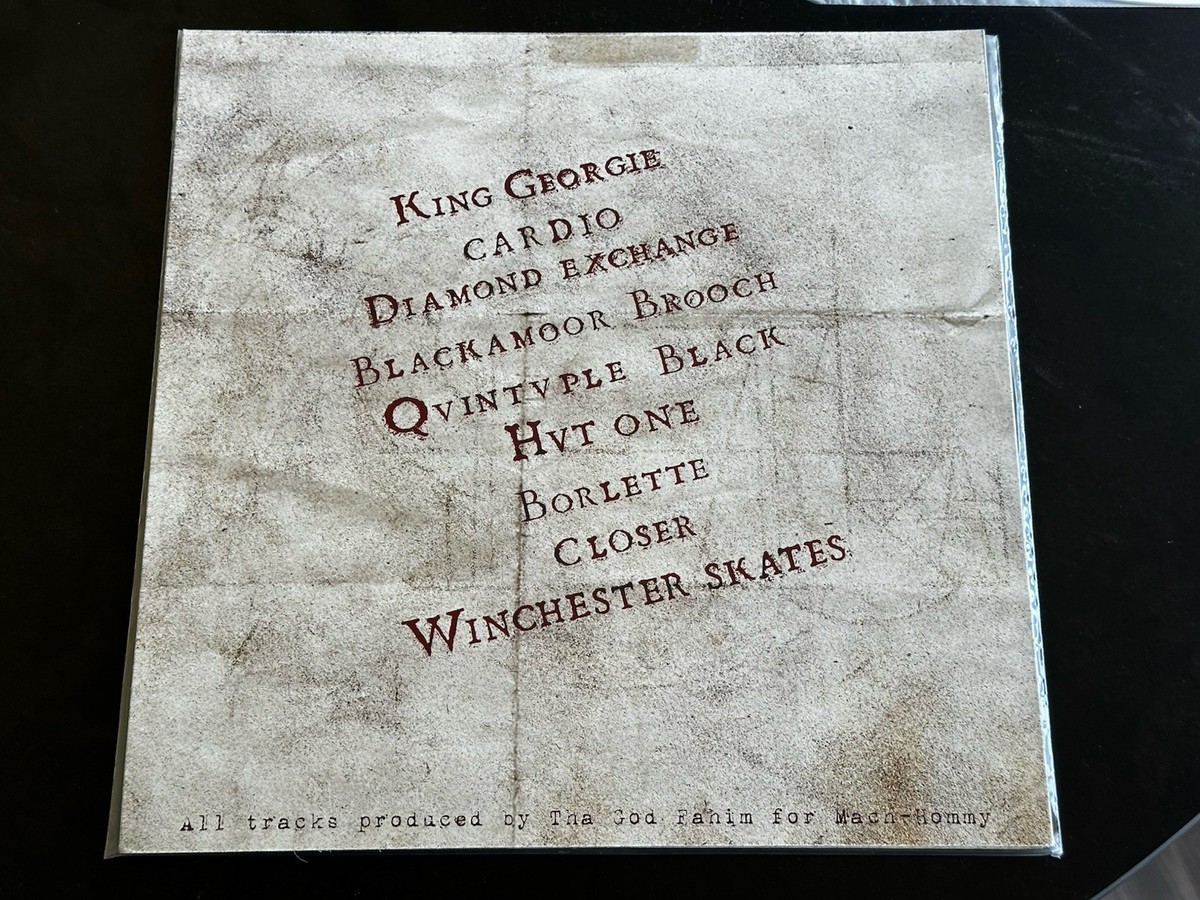 King Georgie
CARDIO
Diamond exchange
Blackamoor Brooch
Qvintvple Black
Hvt one
Borlette
Closer
Winchester skates
All tracks produced by Tha God Fahim for Mach-Hommy